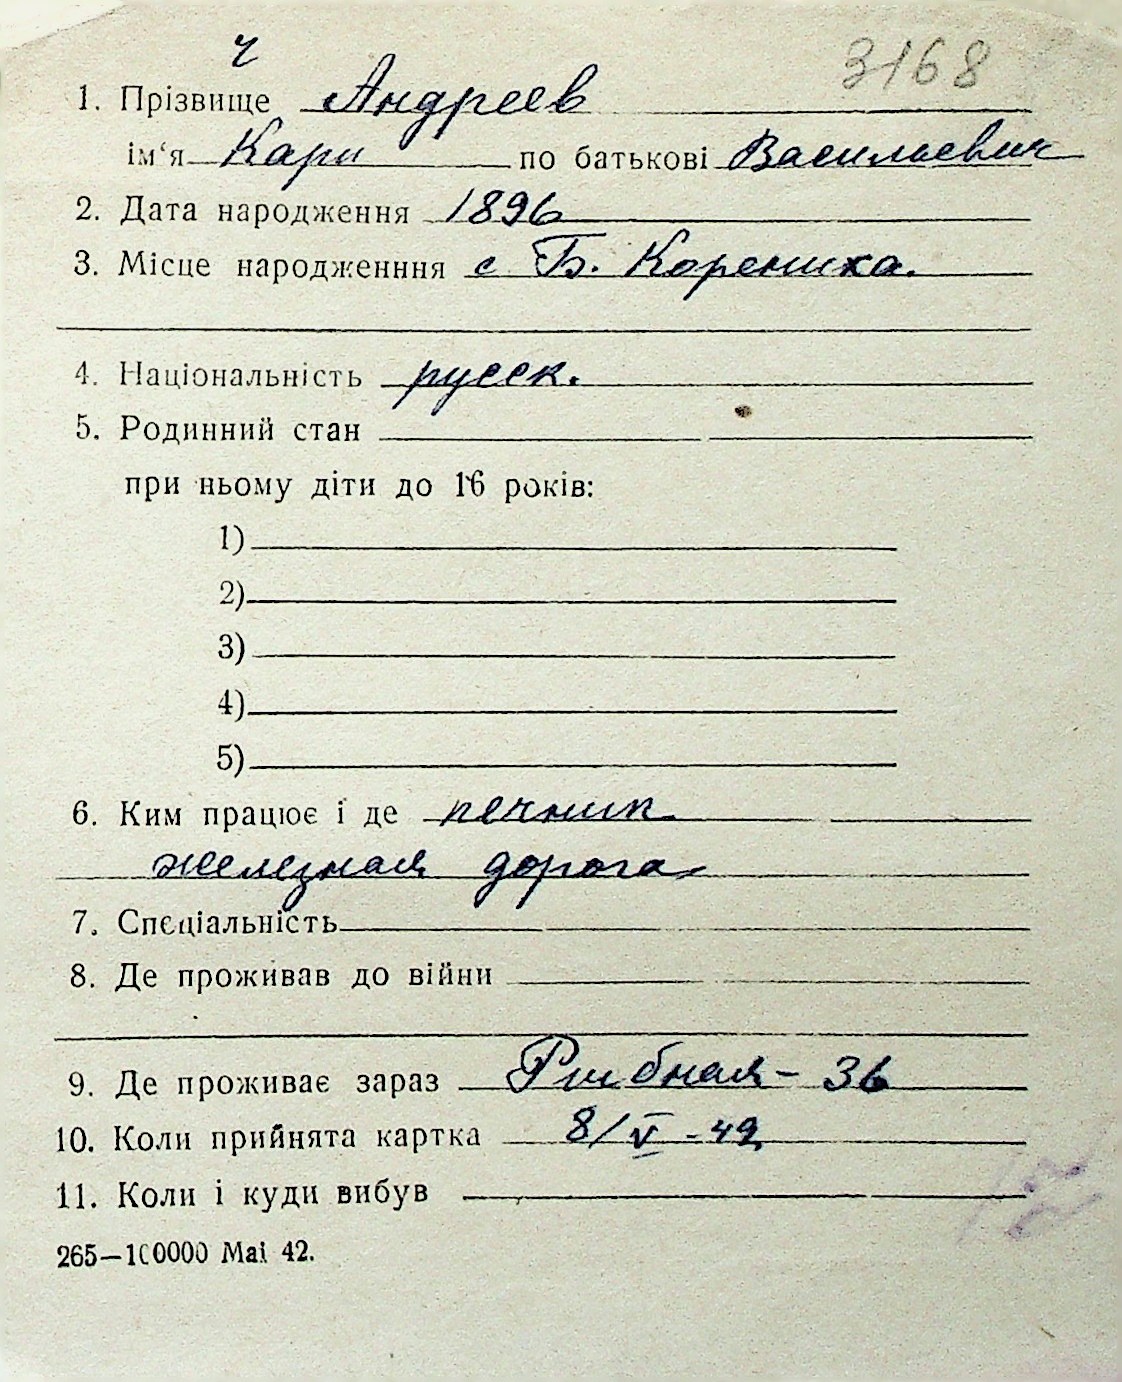 ч
3168
1. Прізвище Андреев
ім‘я Карп по батькові Васильевич
2. Дата народження 1896
3. Місце народженння с Б. Корениха.
4. Національність русск.
5. Родинний стан
при ньому діти до 16 років:
1)
2)
3)
4)
5)
6. Ким працює і де печник
железная дорога
7. Спєціальність
8. Де проживав до війни
9. Де проживає зараз Рыбная - 36
10. Коли прийнята картка 8/V - 42
11. Коли і куди вибув
265—100000 Mai 42.